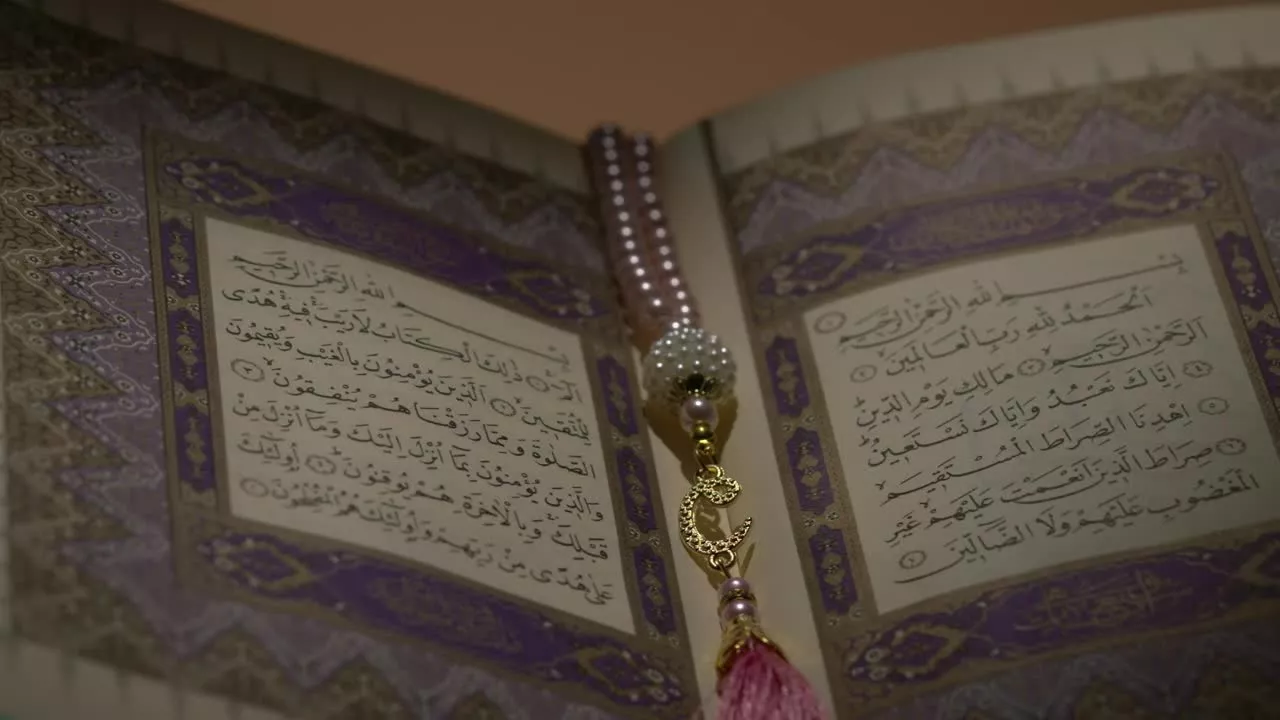 بِسْمِ اللهِ الرَّحْمٰنِ الرَّحِيمِ ١
اَلْحَمْدُ لِلّٰهِ رَبِّ الْعَالَمِينَ ٢
اَلرَّحْمٰنِ الرَّحِيمِ ٣ مَالِكِ يَوْمِ الدِّينِ ٤
اِيَّاكَ نَعْبُدُ وَاِيَّاكَ نَسْتَعِينُ ٥
اِهْدِنَا الصِّرَاطَ الْمُسْتَقِيمَ ٦
صِرَاطَ الَّذِينَ اَنْعَمْتَ عَلَيْهِمْ غَيْرِ
الْمَغْضُوبِ عَلَيْهِمْ وَلَا الضَّالِّينَ ٧
بِسْمِ اللهِ الرَّحْمٰنِ الرَّحِيمِ
الٓمٓ ١ ذٰلِكَ الْكِتَابُ لَا رَيْبَ فِيهِ هُدًى
لِلْمُتَّقِينَ ٢ اَلَّذِينَ يُؤْمِنُونَ بِالْغَيْبِ وَيُقِيمُونَ
الصَّلٰوةَ وَمِمَّا رَزَقْنَاهُمْ يُنْفِقُونَ ٣
وَالَّذِينَ يُؤْمِنُونَ بِمَا اُنْزِلَ اِلَيْكَ وَمَا اُنْزِلَ مِنْ
قَبْلِكَ وَبِالْاٰخِرَةِ هُمْ يُوقِنُونَ ٤ اُولٰئِكَ
عَلٰى هُدًى مِنْ رَبِّهِمْ وَاُولٰئِكَ هُمُ الْمُفْلِحُونَ ٥